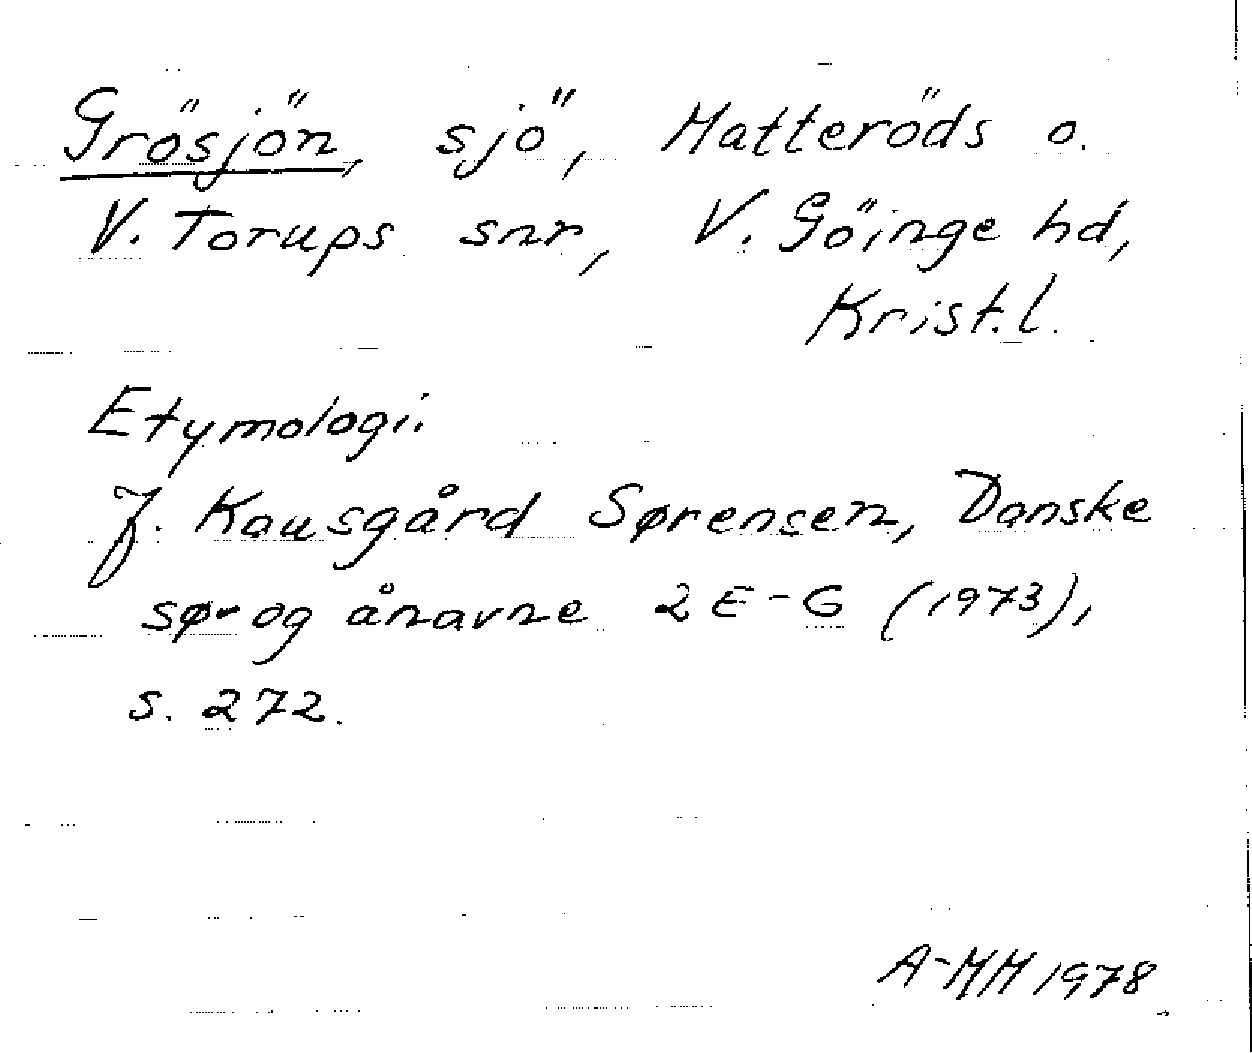 Grösjön, sjö, Matteröds o.
V. Torups snr, V. Göinge hd,
Krist.l.
Etymologi.
J. Kousgård Sørensen, Danske
sø- og ånavne 2 E-G (1973),
s. 272.
A-MM 1978